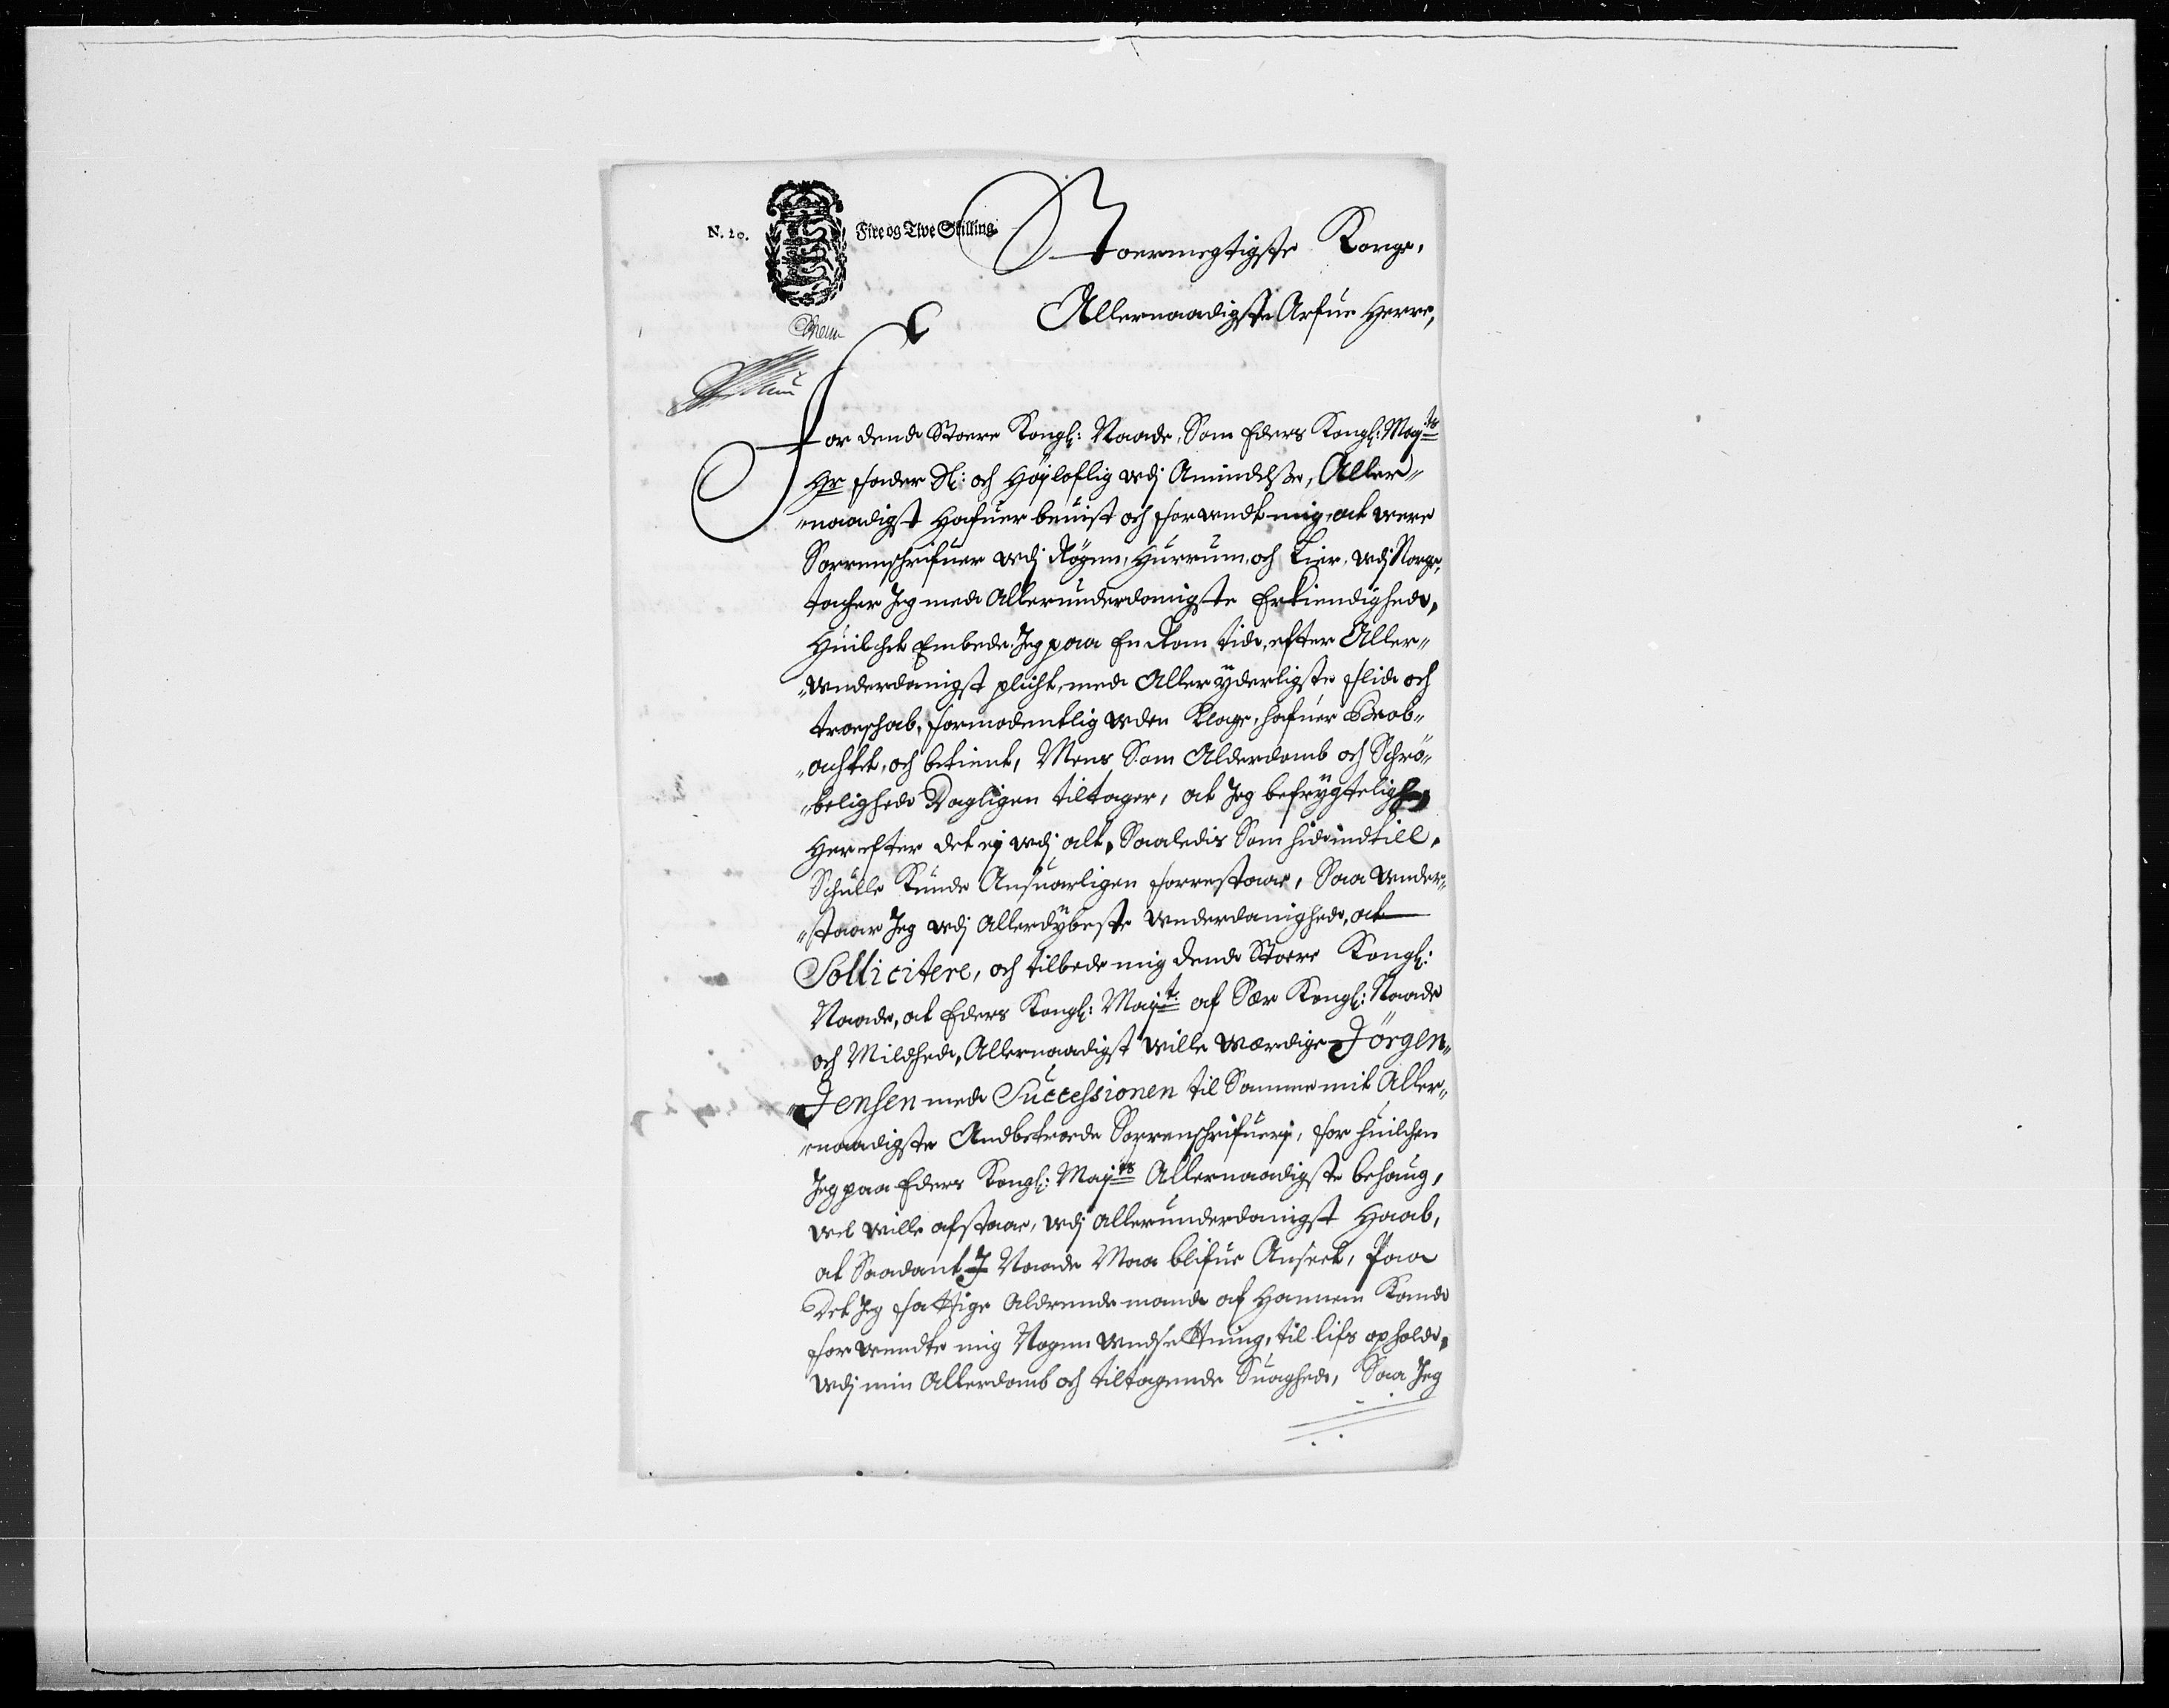 N. 20. Fire og Tive Skilling
Stoermegtigste Konge,
Allernaadigste Arfue Herre,
For dend Stoere Kongl: Naade, Som Eders Kongl: Mayts
Hr fader Sl: och Höyloflig udj Amindelsse, Aller"
"naadigst hafuer beuist och forundt mig, at were
Sorrenschrifuer udj Rögen, Hurrum, och Lier, udj Norge,
tacher Jeg med Allerunderdanigste Erkiendighed,
Huilchet Embede Jeg paa En Rom tid, efter Aller"
"underdanigst plicht, med Aller yderligste flid och
troeschab, formodentlig uden Klage, hafuer Beob"
"achtet, och betient, Mens Som Alderdomb och Schrö"
"belighed Dagligen tiltager, at Jeg befrygtelig
Herefter det ej udj alt, Saaledis Som hidindtill,
Schulle Kunde Ansuarligen forrestaae, Saa under"
"staar Jeg udj Allerdybeste underdanighed, at
Sollicitere, och tilbede mig dend Stoere Kongl:
Naade, at Eders Kongl: Mayt af Sær Kongl: Naade
och Mildhed, Allernaadigst wille wærdige Jörgen"
"Jensen med Successionen til Samme mit Aller"
"naadigste Andbetroede Sorrenschrifuerj, for huilchen
Jeg paa Eders Kongl: Mayts Allernaadigste behaug,
wel wille afstaae, udj allerunderdanigst Haab,
at Saadant J Naade Maa blifue Anseet, Paa
Det Jeg fattige Aldrende mand af Hannem Kand
forwendte mig Nogen undsettning, til lifs ophold,
udj min Alterdomb och tiltagende Suaghed, Saa Jeg